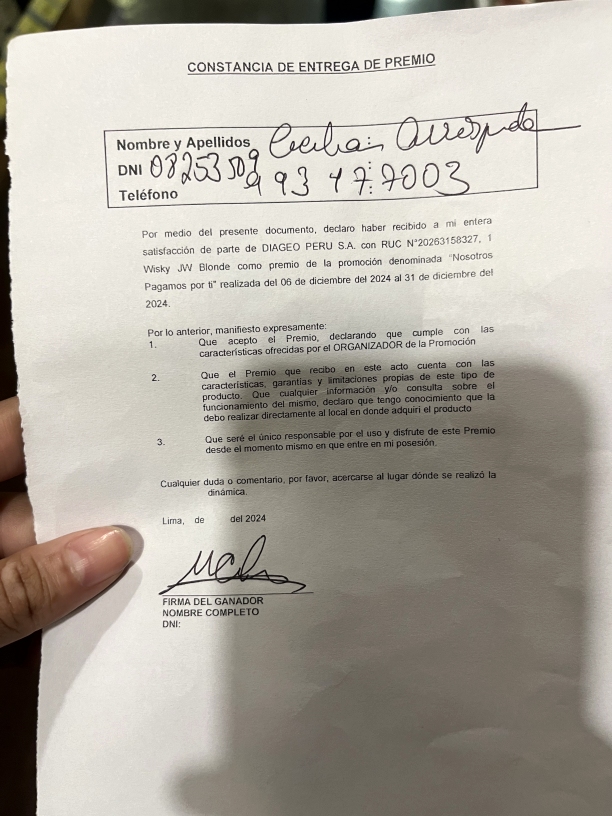 CONSTANCIA DE ENTREGA DE PREMIO
Nombre y Apellidos
DNI
Teléfono
Por medio del presente documento, declaro haber recibido a mi entera
satisfacción de parte de DIAGEO PERU S.A. con RUC N°20263158327, 1
Wisky JW Blonde como premio de la promoción denominada "Nosotros
Pagamos por ti" realizada del 06 de diciembre del 2024 al 31 de diciembre del
2024.
Por lo anterior, manifiesto expresamente:
1. Que acepto el Premio, declarando que cumple con las
características ofrecidas por el ORGANIZADOR de la Promoción
2. Que el Premio que recibo en este acto cuenta con las
características, garantías y limitaciones propias de este tipo de
producto. Que cualquier información y/o consulta sobre el
funcionamiento del mismo, declaro que tengo conocimiento que la
debo realizar directamente al local en donde adquirí el producto
3. Que seré el único responsable por el uso y disfrute de este Premio
desde el momento mismo en que entre en mi posesión.
Cualquier duda o comentario, por favor, acercarse al lugar dónde se realizó la
dinámica.
Lima, de del 2024
FIRMA DEL GANADOR
NOMBRE COMPLETO
DNI: